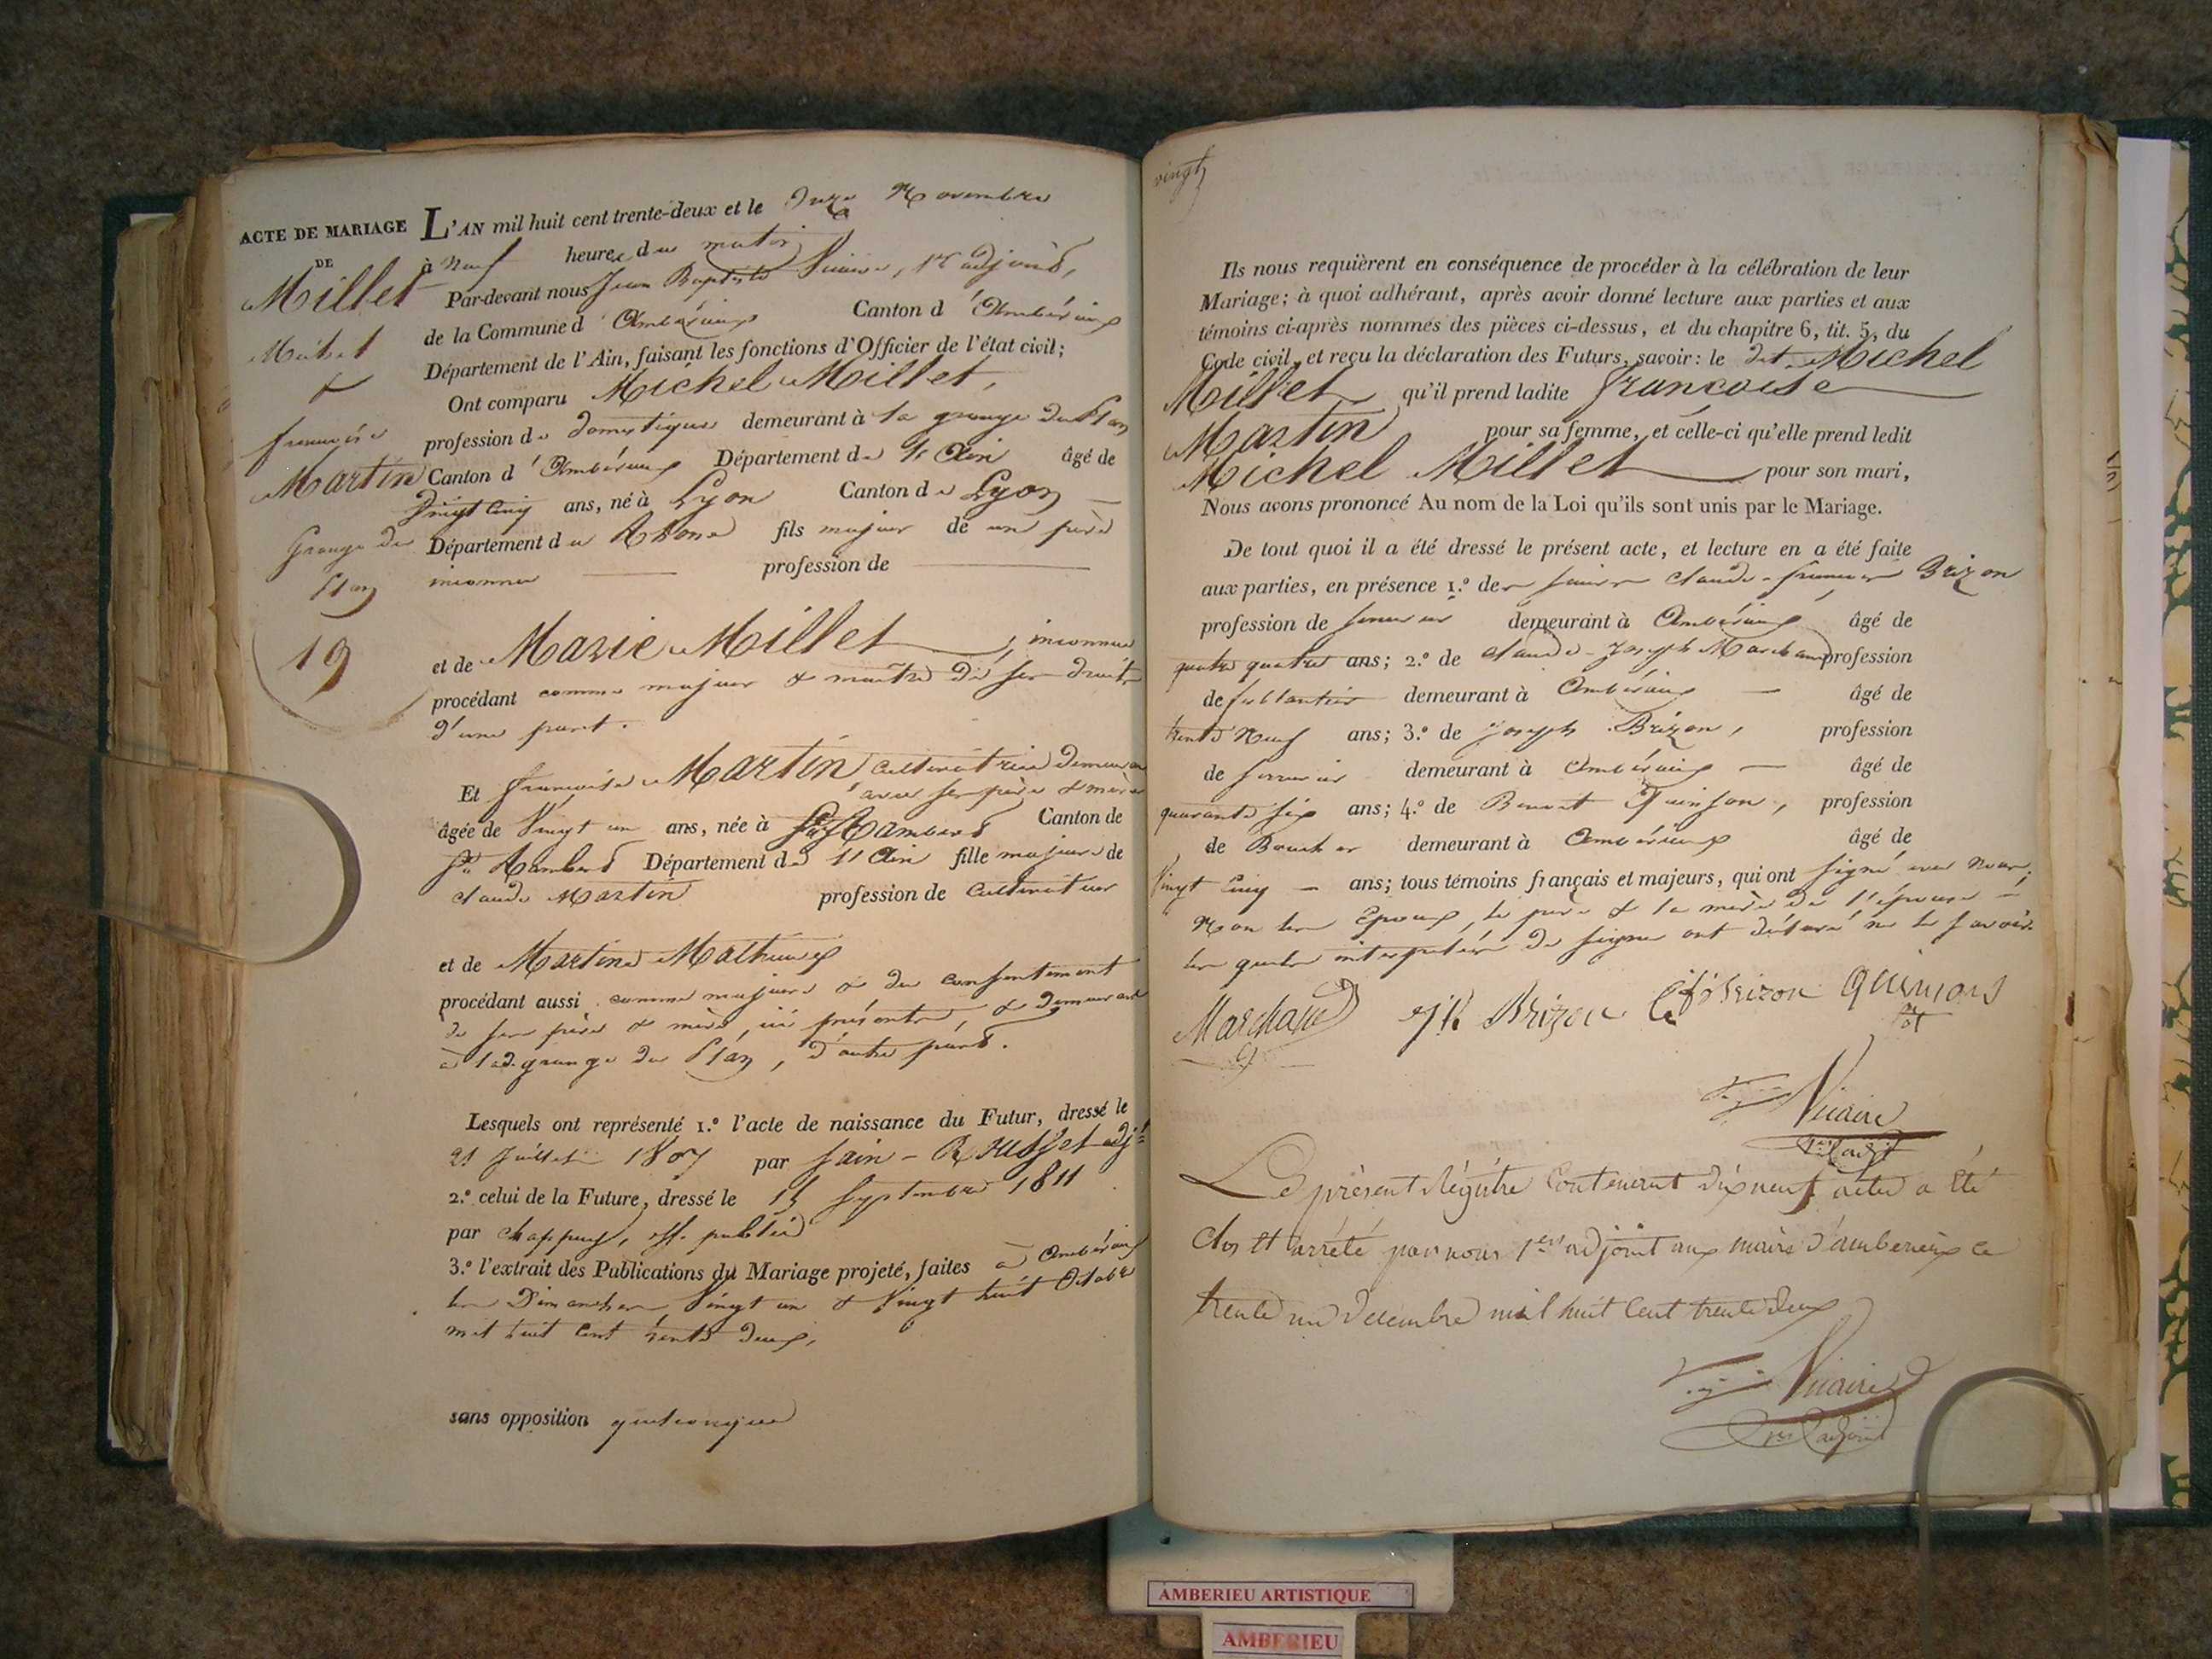 ACTE DE MARIAGE
DE
Millet
Michel
&
françoise
Martin
Grange du
Plan
19
L'AN mil huit cent trente-deux et le onze Novembre
à neuf heures du matin
Par-devant nous Jean Baptiste Vicaire, 1er adjoint,
de la Commune d'Ambérieux Canton d'Ambérieux
Département de l'Ain, faisant les fonctions d'Officier de l'état civil;
Ont comparu Michel Millet,
profession de domestique demeurant à la grange du Plan
Canton d'Ambérieux Département de l'Ain âgé de
Vingt Cinq ans, né à Lyon Canton de Lyon
Département du Rhone fils majeur de un père
inconnu profession de
et de Marie Millet, inconnue
procédant comme majeur & maître de ses droits
d'une part.
Et françoise Martin cultivatrice demeurant
avec ses père & mère
âgée de Vingt un ans, née à St Rambert Canton de
St Rambert Département de l'Ain fille majeure de
claude Martin profession de Cultivateur
et de Martine Mathieux
procédant aussi comme majeure & du consentement
de ses père & mère, ici présents, & demeurant
à lad. grange du Plan, d'autre part.
Lesquels ont représenté 1.º l'acte de naissance du Futur, dressé le
21 Juillet 1807 par Sain-Rousset adjt
2.º celui de la Future, dressé le 15 Septembre 1811
par Chappuy, off. public
3.º l'extrait des Publications du Mariage projeté, faites à Ambérieux
les Dimanches Vingt un & Vingt huit Octobre
mil huit Cent trente deux,
sans opposition quelconque
vingt
Ils nous requièrent en conséquence de procéder à la célébration de leur
Mariage; à quoi adhérant, après avoir donné lecture aux parties et aux
témoins ci-après nommés des pièces ci-dessus, et du chapitre 6, tit. 5, du
Code civil, et reçu la déclaration des Futurs, savoir: le dt Michel
Millet qu'il prend ladite francoise
Martin pour sa femme, et celle-ci qu'elle prend ledit
Michel Millet pour son mari,
Nous avons prononcé Au nom de la Loi qu'ils sont unis par le Mariage.
De tout quoi il a été dressé le présent acte, et lecture en a été faite
aux parties, en présence 1.º de claude-françois Brizon
profession de serrurier demeurant à Ambérieux âgé de
ans; 2.º de claude-Joseph Marchand profession
de ferblantier demeurant à Ambérieux âgé de
trente neuf ans; 3.º de joseph Brizon, profession
de serrurier demeurant à Ambérieux âgé de
quarante six ans; 4.º de Benoit Quinson, profession
de Boucher demeurant à Ambérieux âgé de
Vingt Cinq ans; tous témoins français et majeurs, qui ont signé avec nous,
Non les Epoux, le père & la mère de l'épouse
les quels interpelés de signer ont déclaré ne le savoir.
Marchand Brizon Brizon quinson
Vicaire
1er adjt
Le présent Régistre Contenant dix neuf actes a été
Clos et arrété par nous 1er adjoint aux maire d'amberieux ce
trente un decembre mil huit Cent trente deux
Vicaire
1er adjoint
AMBERIEU ARTISTIQUE
AMBERIEU